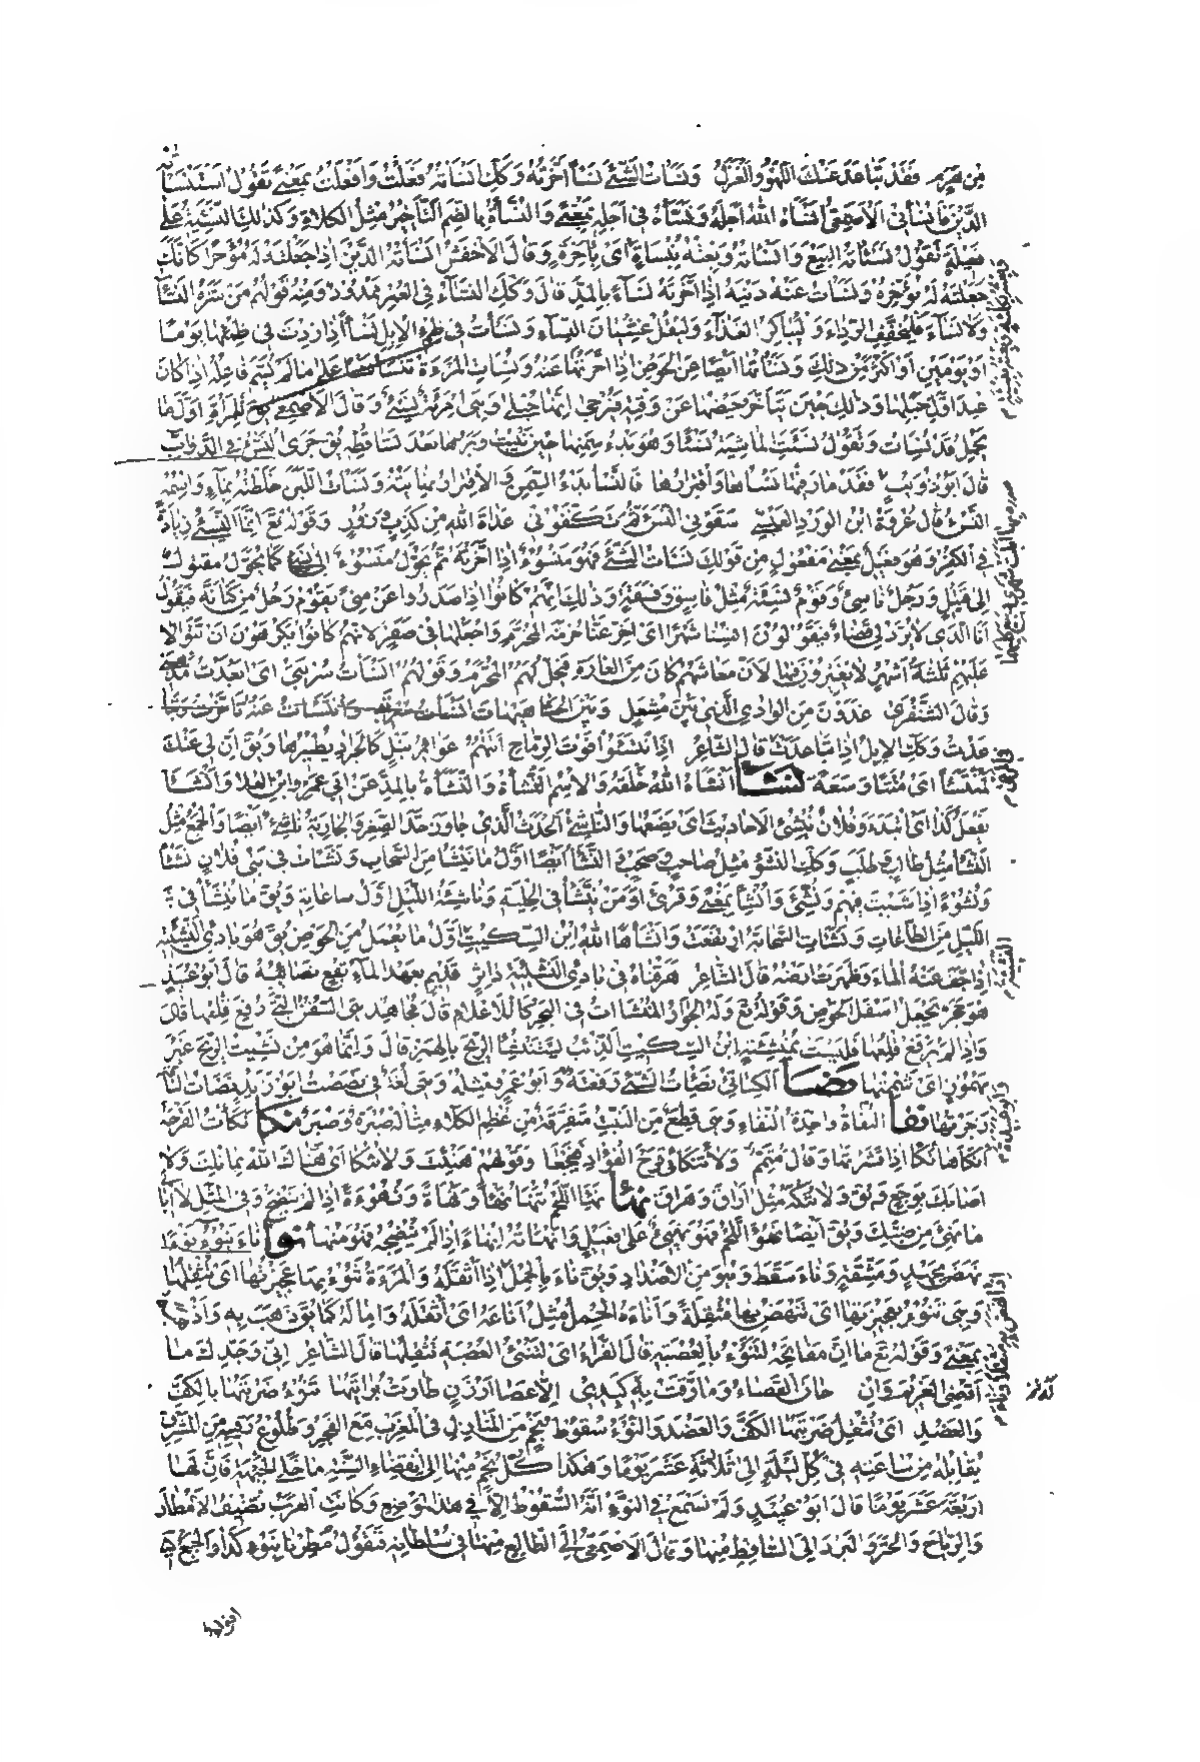 من هرم فقد تباعد عنك اللهو والغزل ونسأت الشئ نسأ أخرته وكذلك أنسأته فعلت وأفعلت بمعنى تقول استنسأته
الدين فأنسأني الأصمعي أنسأه الله أجله ونسأه في أجله بمعنى والنسأة بالضم التأخير مثل الكلأة وكذلك النسيئة على
فعيلة تقول نسأته البيع وأنسأته وبعته بنسأة أي بأخرة وقال الأخفش أنسأته الدين إذا جعلته له مؤخرا كأنك
جعلته له يؤخره ونسأت عنه دينه إذا أخرته نساء بالمد قال وكذلك النساء في العمر ممدود ومنه قولهم من سره النساء
ولا نساء فليخفف الرداء وليباكر الغذاء وليقل غشيان النساء ونسأت في ظمء الإبل نسأ إذا زدت في ظمئها يوما
أو يومين أو أكثر من ذلك ونسأتها أيضا عن الحوض إذا أخرتها عنه ونسئت المرءة تنسأ نسأ على ما لم يسم فاعله إذا كان
عند أول حبلها وذلك حين يتأخر حيضها عن وقته فيرجى أنها حبلى وهي امرأة نسئ وقال الأصمعي يقال للمرأة أول ما
تحمل قد نسئت وتقول نسئت الماشية نسأ وهو بدء سمنها حين ينبت وبرها بعد تساقطه يقال جرى النسئ في الدواب
قال أبو ذؤيب فقد مار فيها نسأها واقترارها فالنسأ بدء السمن والاقترار نهايته ونسأت اللبن خلطته بماء واسمه
النسئ قال عروة ابن الورد العبسي سقوني النسئ ثم تكنفوني عداة الله من كذب وزور وقوله تع إنما النسئ زيادة
في الكفر وهو فعيل بمعنى مفعول من قولك نسأت الشئ فهو منسوء إذا أخرته ثم يحول منسوء إلى نسئ كما يحول مقتول
إلى قتيل ورجل ناسئ وقوم نسأة مثل فاسق وفسقة وذلك أنهم كانوا إذا صدروا عن منى يقوم رجل من كنانة فيقول
أنا الذي لا يرد لي قضاء فيقولون أنسئنا شهرا أي أخر عنا حرمة المحرم واجعلها في صفر لأنهم كانوا يكرهون أن تتوالى
عليهم ثلثة أشهر لا يغيرون فيها لأن معاشهم كان من الغارة فيحل لهم المحرم وقولهم أنسأت سربتي أي أبعدت مذهبي
وقال الشنفرى غدون من الوادي الذي بين مشعل وبين الحشا هيهات أنسأت سربتي وانتسأت عنه تأخرت وتبا
عدت وكذلك الإبل إذا تباعدت قال الشاعر إذا انتسئوا فوت الرماح أتتهم عوائر نبل كالجراد يطيرها ويق إن لي عنك
لمنتسأ أي منتأ وسعة نشأ أنشأه الله خلقه والاسم النشأة والنشاءة بالمد عن أبي عمرو ابن العلا وأنشأ
يفعل كذا أي ابتدء وفلان ينشئ الأحاديث أي يضعها والناشئ الحدث الذي جاوز حد الصغر والجارية ناشئ أيضا والجمع مثل
النشأ مثل طالب وطلب وكذلك النشؤ مثل صاحب وصحب والنشأ أيضا أول ما ينشأ من السحاب ونشأت في بني فلان نشأ
ونشوء إذا شببت فيهم ونشئ وأنشئ بمعنى وقرئ أومن ينشأ في الحلية وناشئة الليل أول ساعاته ويق ما ينشأ في
الليل من الطاعات ونشأت السحابة ارتفعت وأنشأها الله ابن السكيت أول ما يعمل من الحوض يق هو بادي النشيئة
إذا جف عنه الماء وظهرت أرضه قال الشاعر هرقناه في بادي النشيئة داثر قديم بعهد الماء بقع نصائبه قال أبو عبيد
هو حجر يجعل أسفل الحوض وقوله تع وله الجوار المنشآت في البحر كالأعلام قال مجاهد هي السفن التي رفع قلعها قال
وإذا لم يرفع قلعها فليست بمنشئة ابن السكيت الذئب يستنشئ الريح بالهمز قال وإنما هو من نشيت الريح غير
مهموز أي شممتها نصأ الكسائي نصأت الشئ رفعته وأبو عمرو مثله وهي لغة في نصصت أبو زيد نصأت الناقة
زجرتها نفأ النفأة واحدة النفاء وهي قطع من النبت متفرقة من عظم الكلاء مثال صبرة وصبر نكأ نكأت القرحة
أنكأها نكأ إذا قشرتها وقال متمم ولا تنكئي قرح الفؤاد فييجعا وقولهم هنئت ولا تنكأ أي هناك الله بما نلت ولا
أصابك بوجع ويق ولا تنكه مثل أراق وهراق نهأ نهئ اللحم ينهأ نهأ ونهاءة ونهوءة إذا لم ينضج وفي المثل لا أبالي
ما نهئ من ضبك ويق أيضا نهؤ اللحم فهو نهئ على فعيل وأنهأته إنهاء إذا لم تنضجه فهو منهأ نوأ ناء ينوء نوءا
نهض بجهد ومشقة وناء سقط وهو من الأضداد ويق ناء بالحمل إذا أثقله والمرءة تنوء بها عجيزتها أي تثقلها
وهي تنوء بعجيزتها أي تنهض بها مثقلة وأناءه الحمل مثل أناعه أي أثقله وأماله كما يق ذهب به وأذهبه
بمعنى وقوله تع ما إن مفاتحه لتنوء بالعصبة قال الفراء أي لتنئ العصبة تثقلها قال الشاعر إني وجدك ما
أقضي الغريم وإن حان القضاء وما رقت به كبدي إلا عصا أرزن طارت برايتها تنوء ضربتها بالكف
والعضد أي تثقل ضربتها الكف والعضد والنوء سقوط نجم من المنازل في المغرب مع الفجر وطلوع رقيبه من المشرق
يقابله من ساعته في كل ليلة إلى ثلاثة عشر يوما وهكذا كل نجم منها إلى انقضاء السنة ما خلا الجبهة فإن لها
أربعة عشر يوما قال أبو عبيد ولم نسمع في النوء أنه السقوط إلا في هذا الموضع وكانت العرب تضيف الأمطار
والرياح والحر والبرد إلى الساقط منها وقال الأصمعي إلى الطالع منها في سلطانه فتقول مطرنا بنوء كذا والجمع